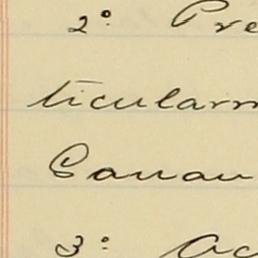 2º Pre
ticularm
Canau
3º Ac